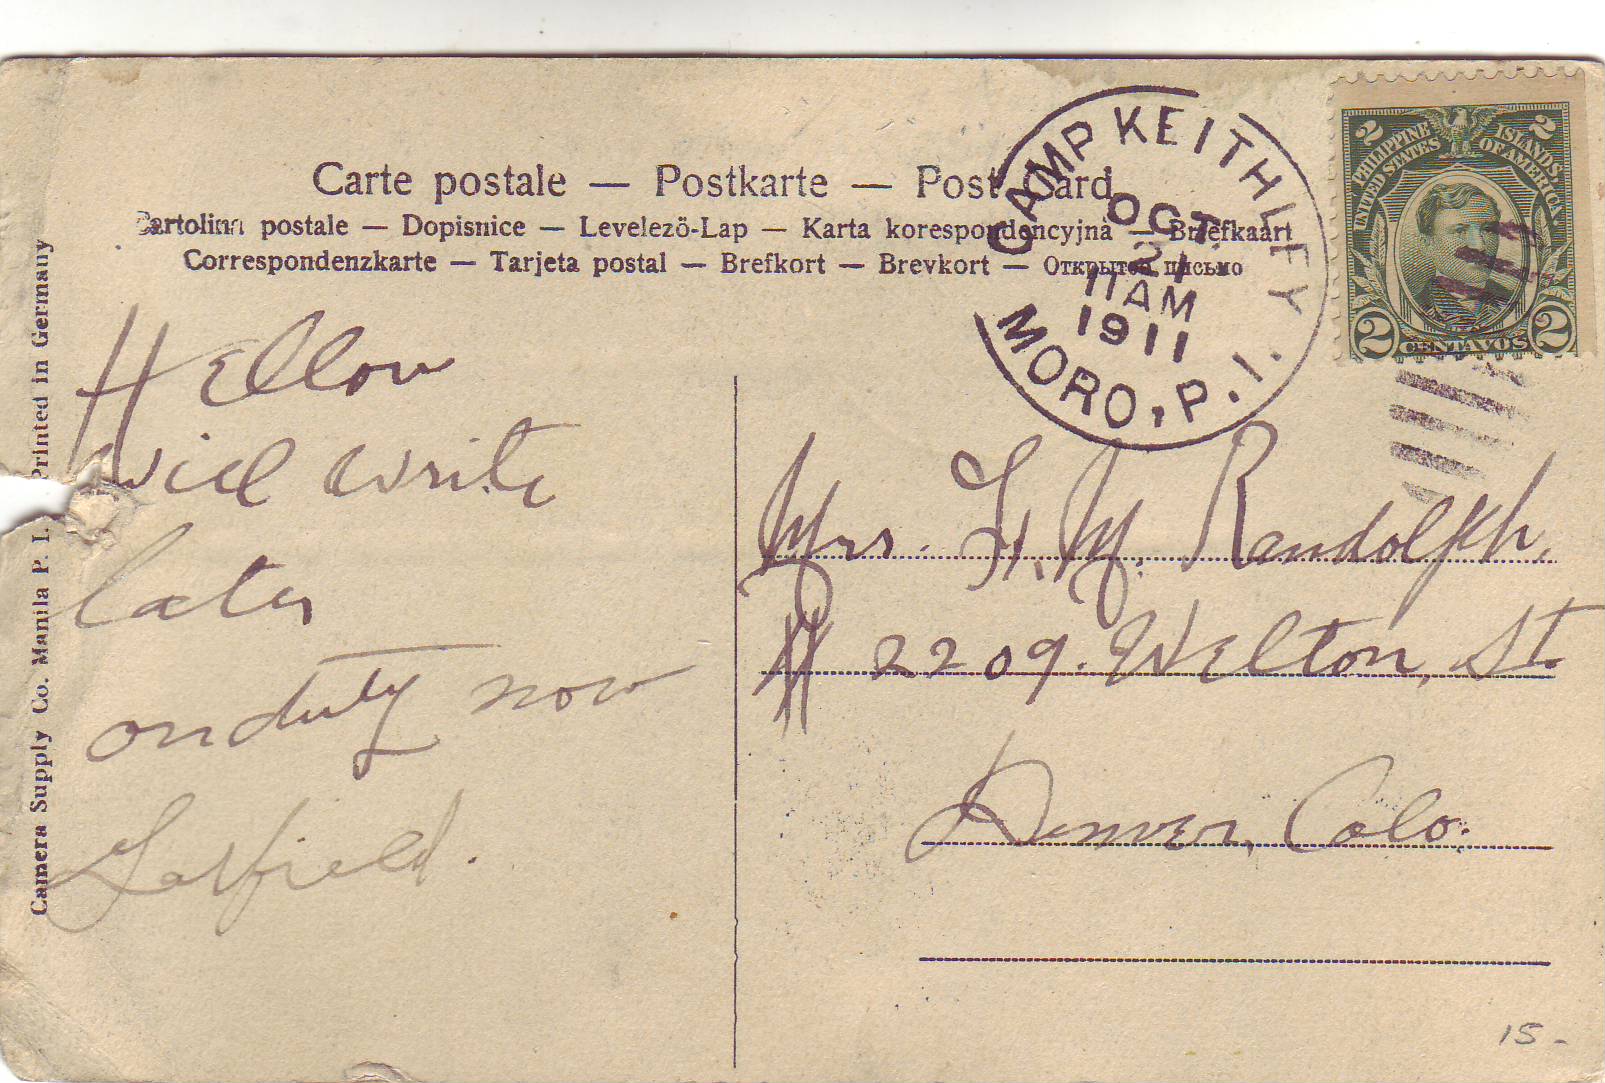 Carte postale — Postkarte — Post Card
Cartolina postale — Dopisnice — Levelező-Lap — Karta korespondencyjna — Briefkaart
Correspondenzkarte — Tarjeta postal — Brefkort — Brevkort — Открытое письмо
CAMP KEITHLEY
OCT
21
11AM
1911
MORO, P.I.
2 2
PHILIPPINE ISLANDS
UNITED STATES OF AMERICA
2 CENTAVOS 2
Camera Supply Co. Manila P. I. Printed in Germany
Hellow
will write
later
on duty now
Garfield.
Mrs. H. M. Randolph,
2209. Welton, St.
Denver, Colo.
15-